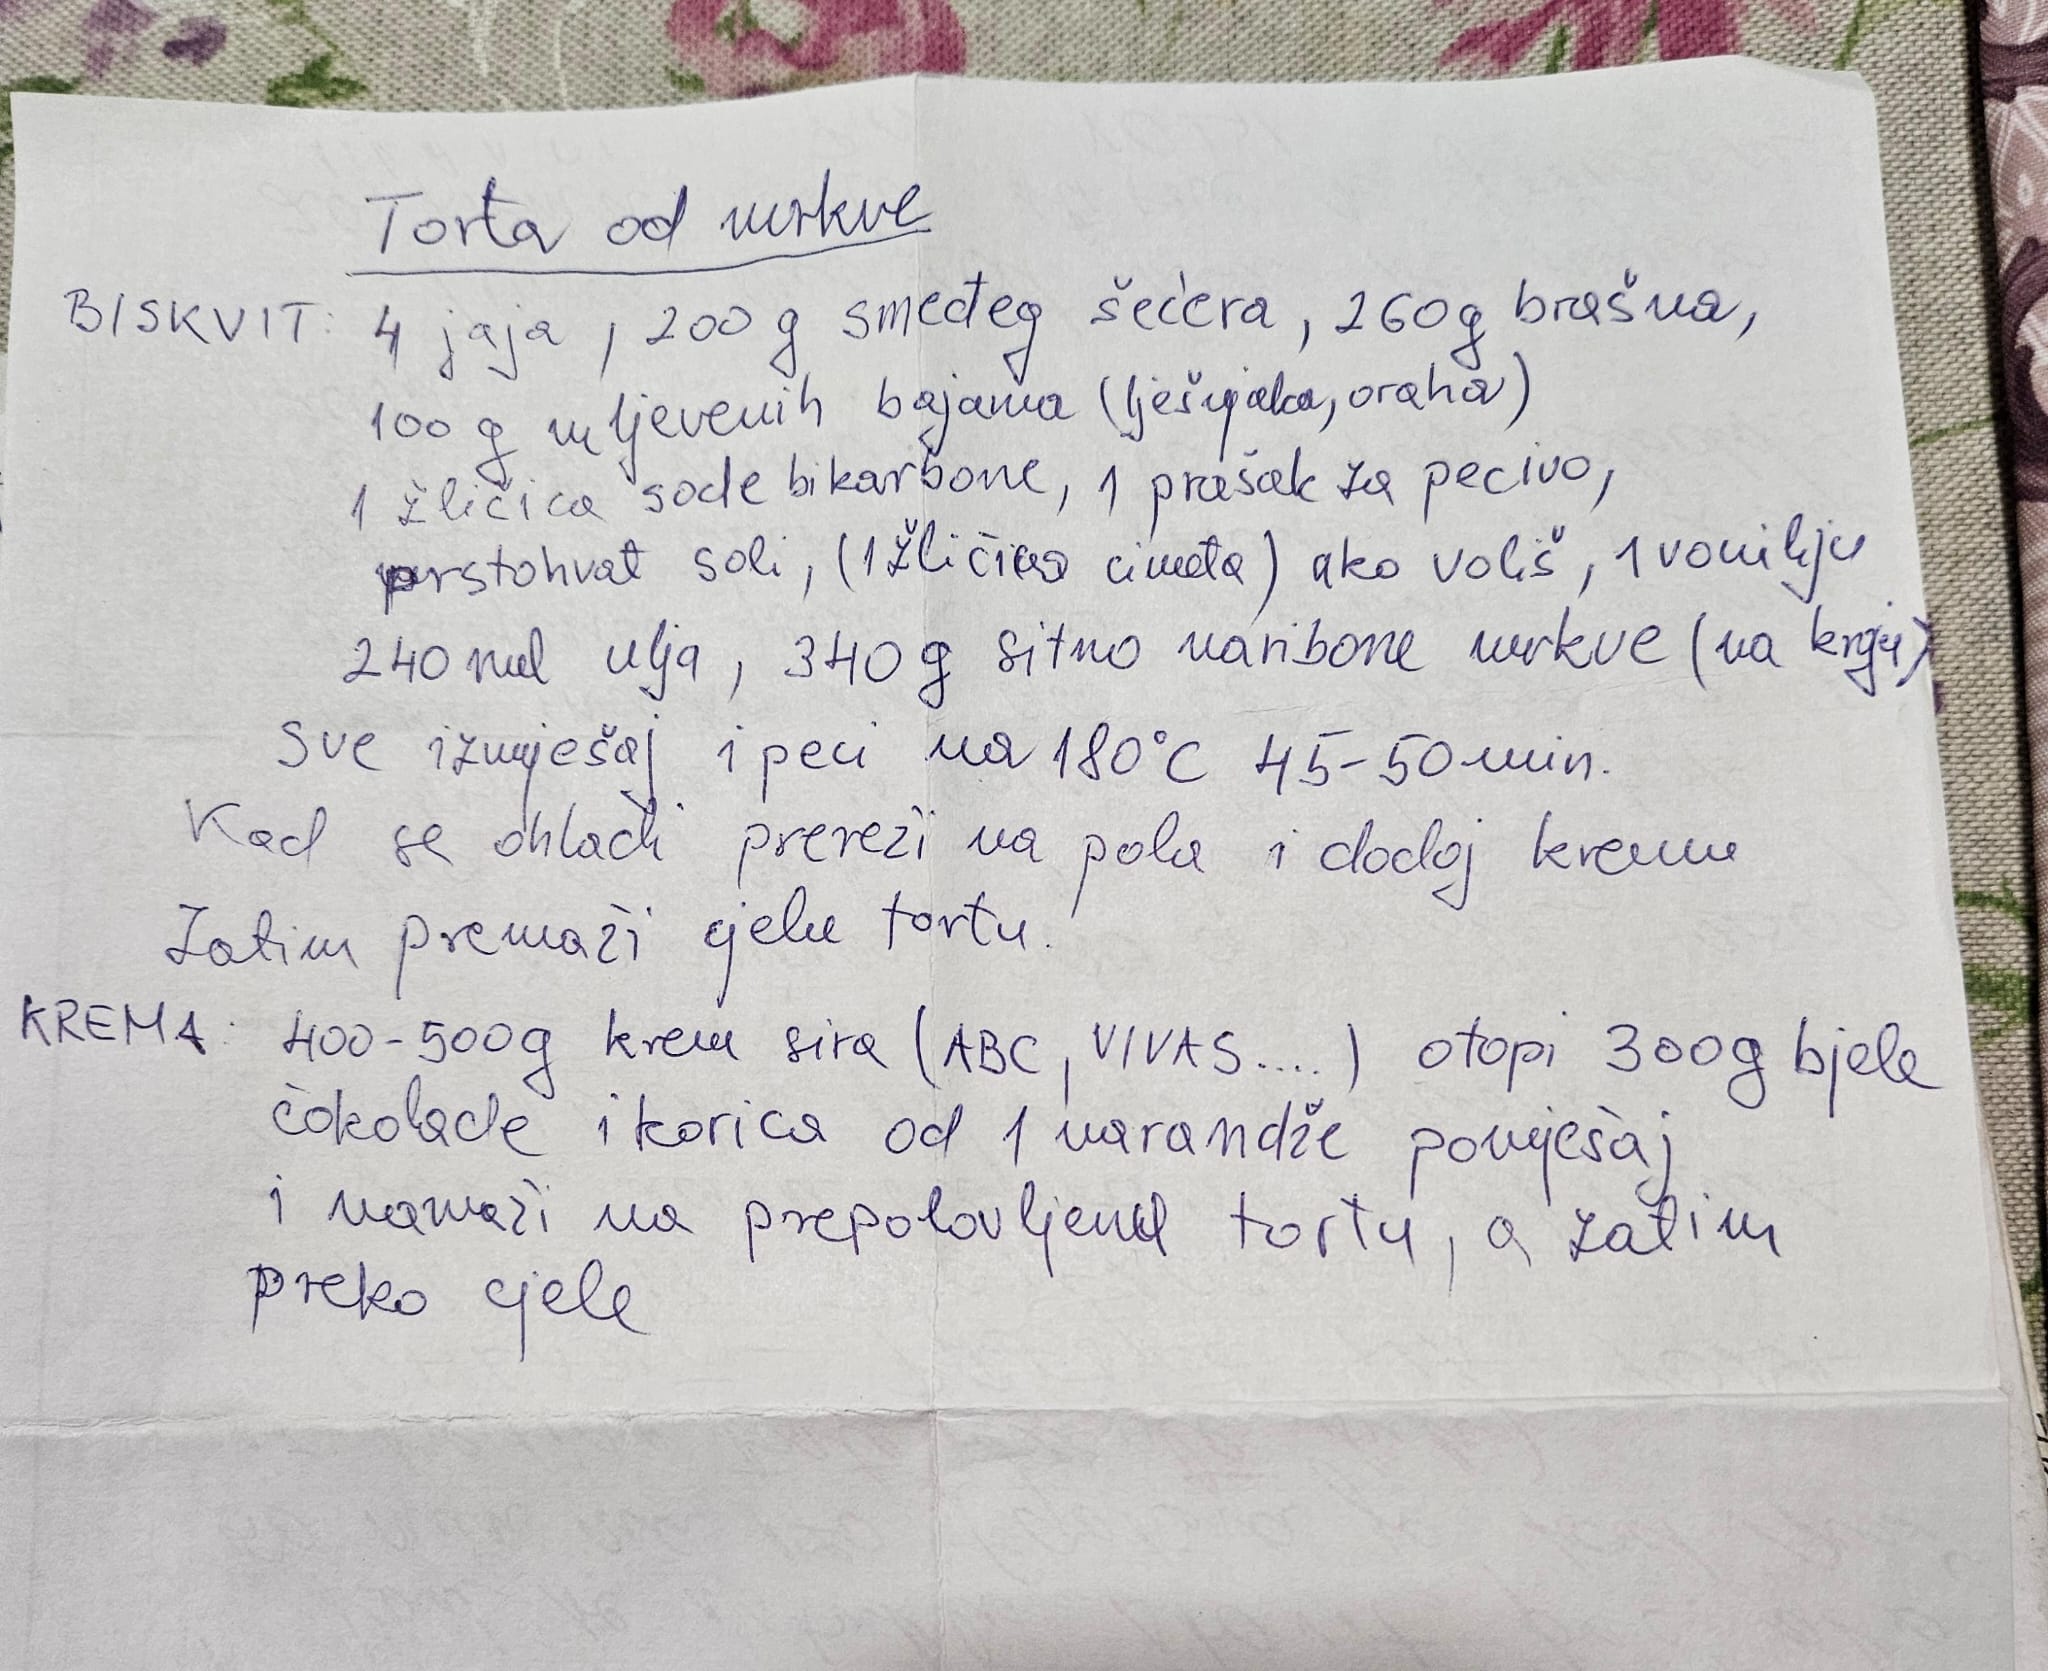 Torta od mrkve
BISKVIT: 4 jaja, 200 g smeđeg šećera, 260g brašna,
100 g mljevenih bajama (lješnjaka, oraha)
1 žličica sode bikarbone, 1 prašak za pecivo,
prstohvat soli, (1 žličica cimeta) ako voliš, 1 vaniliju
240 ml ulja, 340 g sitno naribane mrkve (na kraju)
Sve izmješaj i peci na 180°C 45-50 min.
Kad se ohladi prereži na pola i dodaj kremu
Zatim premaži cjelu tortu.
KREMA: 400-500g krem sira (ABC, VIVAS....) otopi 300g bjele
čokolade i korica od 1 narandže pomješaj
i namaži na prepolovljenu tortu, a zatim
preko cjele